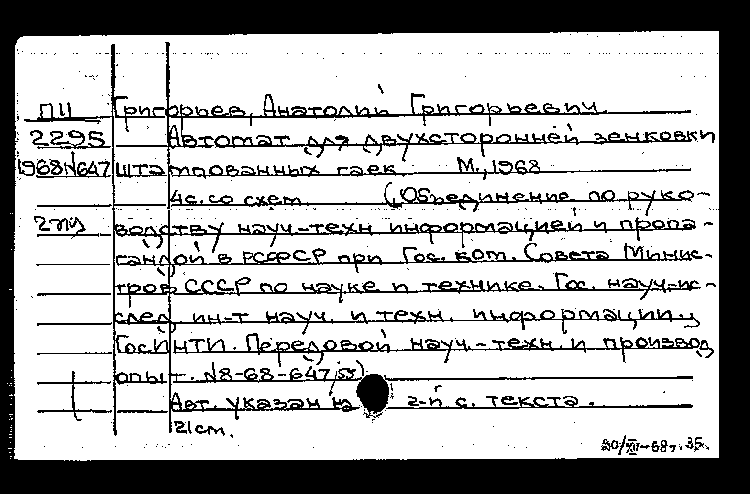 ПИ Григорьев, Анатолий Григорьевич.
2295 Автомат для двухсторонней зенковки
1968№647 штампованных гаек. М., 1968
4с. со схем. (Объединение по руко-
2 экз водству науч-техн информацией и пропа-
гандой в РСФСР при Гос. ком. Совета Минис-
тров СССР по науке и технике. Гос. науч-ис-
след. ин-т науч. и техн. информации
ГосИНТИ. Передовой науч.-техн. и производ
опыт. №8-68-647/53)
Авт. указан на 2-й с. текста.
21 см.
20/XII-68г. 35.